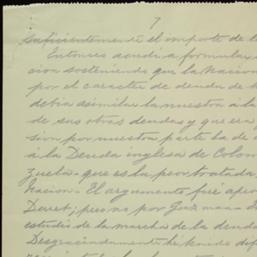 7
suficientemente el importe de l
Entonces acudí a formular
cion sosteniendo que la Nacion
por el caracter de deuda de
debia asimilar la nuestra á la
de sus otras deudas y que era
sion por nuestra parte ha de
á la Deuda inglesa de Colom
zuela - que es la peor tratada
Nacion - El argumento fué apro
pero no por Guzman
estudio de la marcha de la deuda
Desgraciadamente he